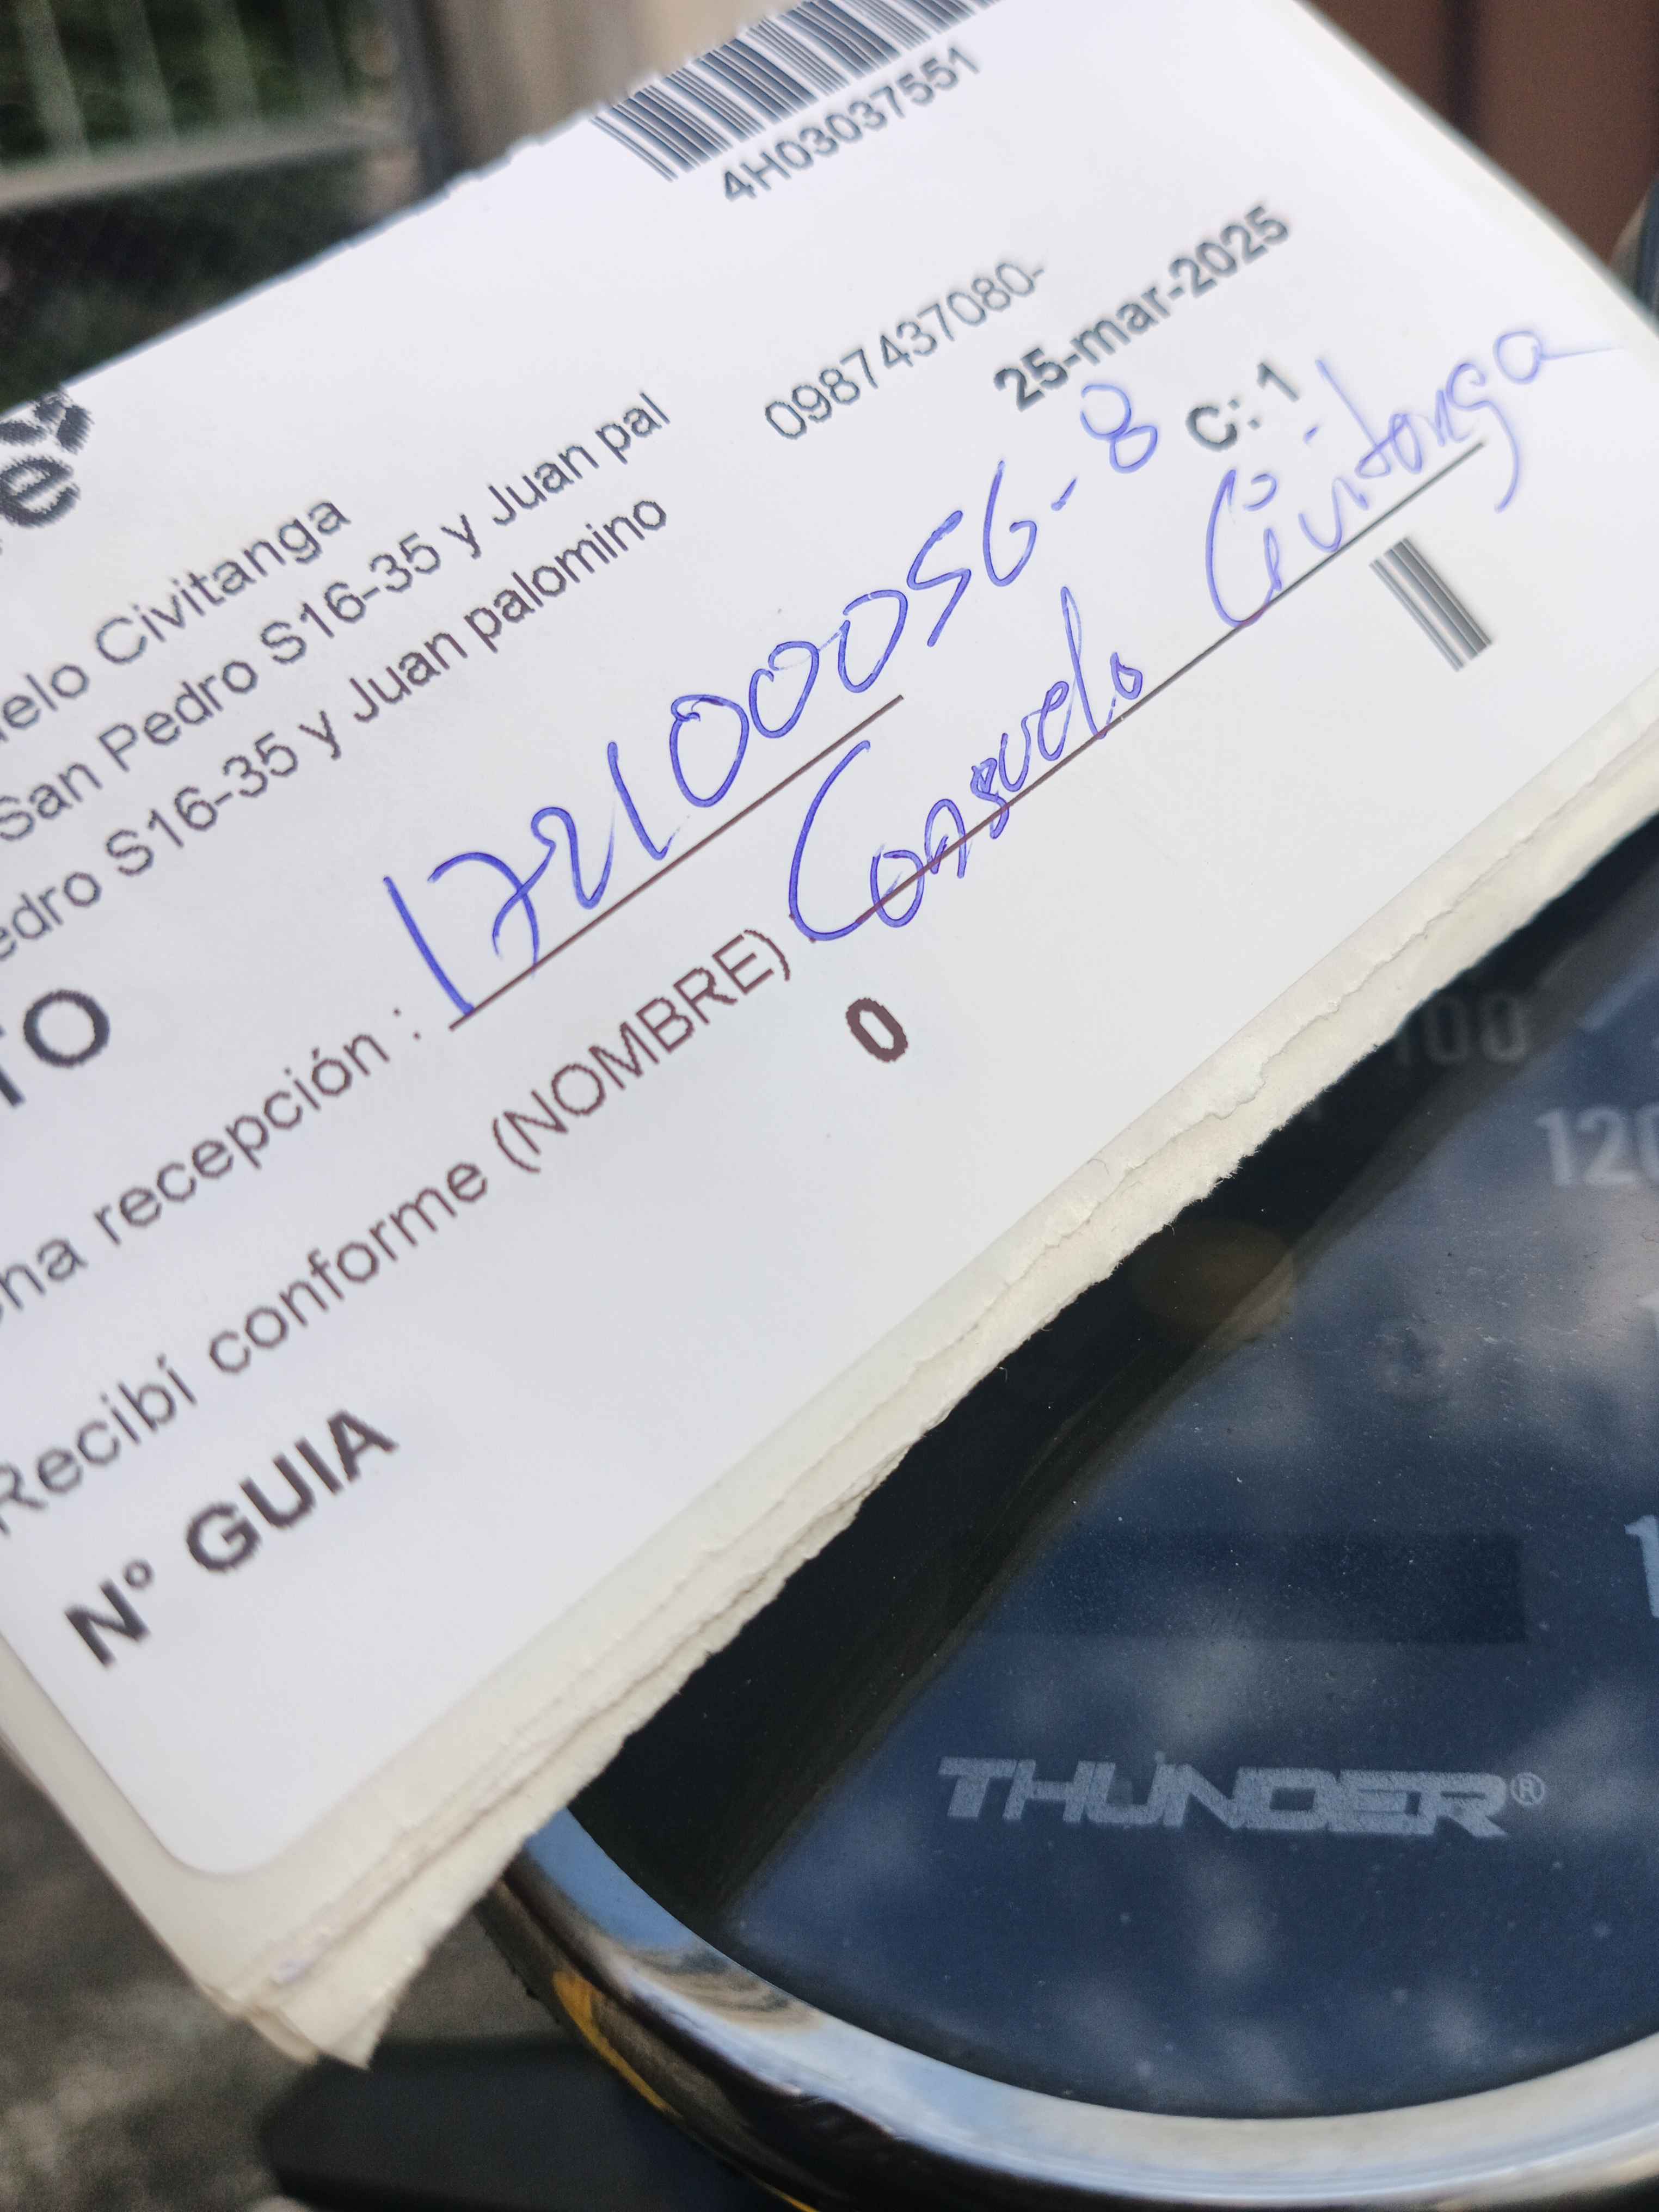 4H03037551
e
elo Civitanga
San Pedro S16-35 y Juan pal
0987437080-
edro S16-35 y Juan palomino
25-mar-2025
TO
C: 1
na recepción : 172100056-8
Recibí conforme (NOMBRE) : Consuelo Civitanga
Nº GUIA
0
100
120
THUNDER®